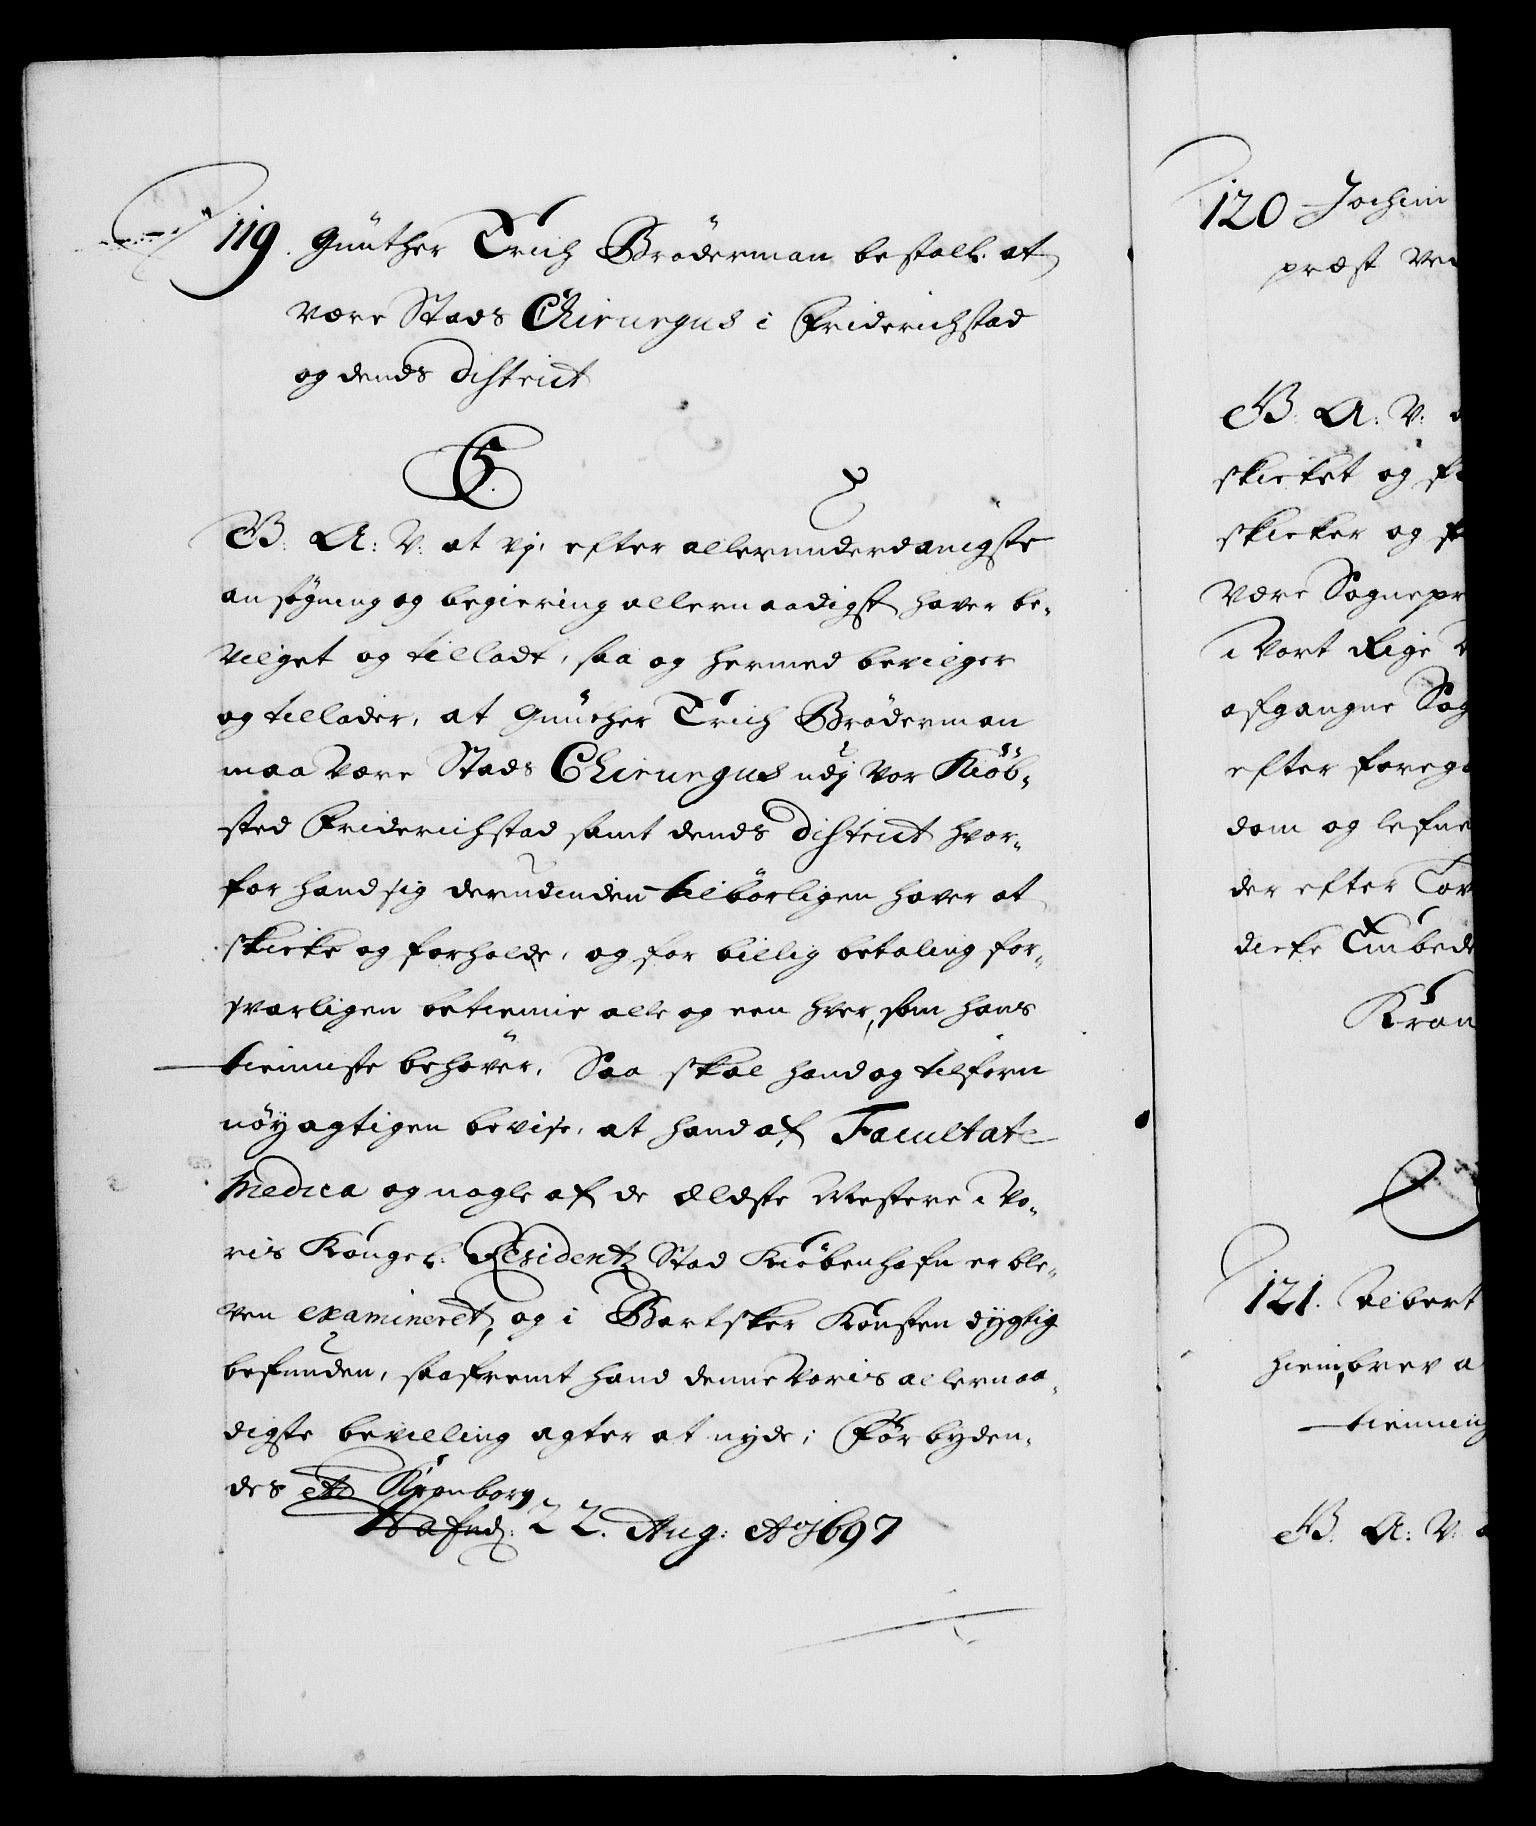 119. Günther Erich Bröderman bestall: at
være Stads Chirurgus i Friderichstad
og dends district
C 5.
G. A: V: at vj, efter allerunderdanigste
ansøgning og begiering allernaadigst hafver be-
vilget og tilladt, saa og hermed bevilger
og tillader, at Günther Erich Bröderman
maa være Stads Chirurgus udj vor Kiöb-
sted Friderichstad samt dends district hvor-
for hand sig derudinden tilbörligen hafver at
skicke og forholde, og for billig betaling for-
svarligen betienne alle og een hver, som hans
tienniste behöver, Saa skal hand og tilforn
nöyagtigen bevise, at hand af Facultate
Medica og nogle af de ældste Mestere i Vo-
ris Kongel: Residentz Stad Kiöbenhafn er ble-
ven examineret, og i Bartsker Konsten dygtig
befunden, saafremt hand denne voris allernaa-
digste bevilling agter at nyde; Forbyden-
des etc Kronborg
Hafnd: 22. Aug: Ao 1697
120 Jochim
præst ved
G. A: V:
skicket og
skicker og
være Sognepr
i Vort Rige
afgangne Sog
efter forega
dom og lefne
der efter Vor
dicte Embede
Kron
121. Albert
hiem, brev a
tienning
G. A: V: